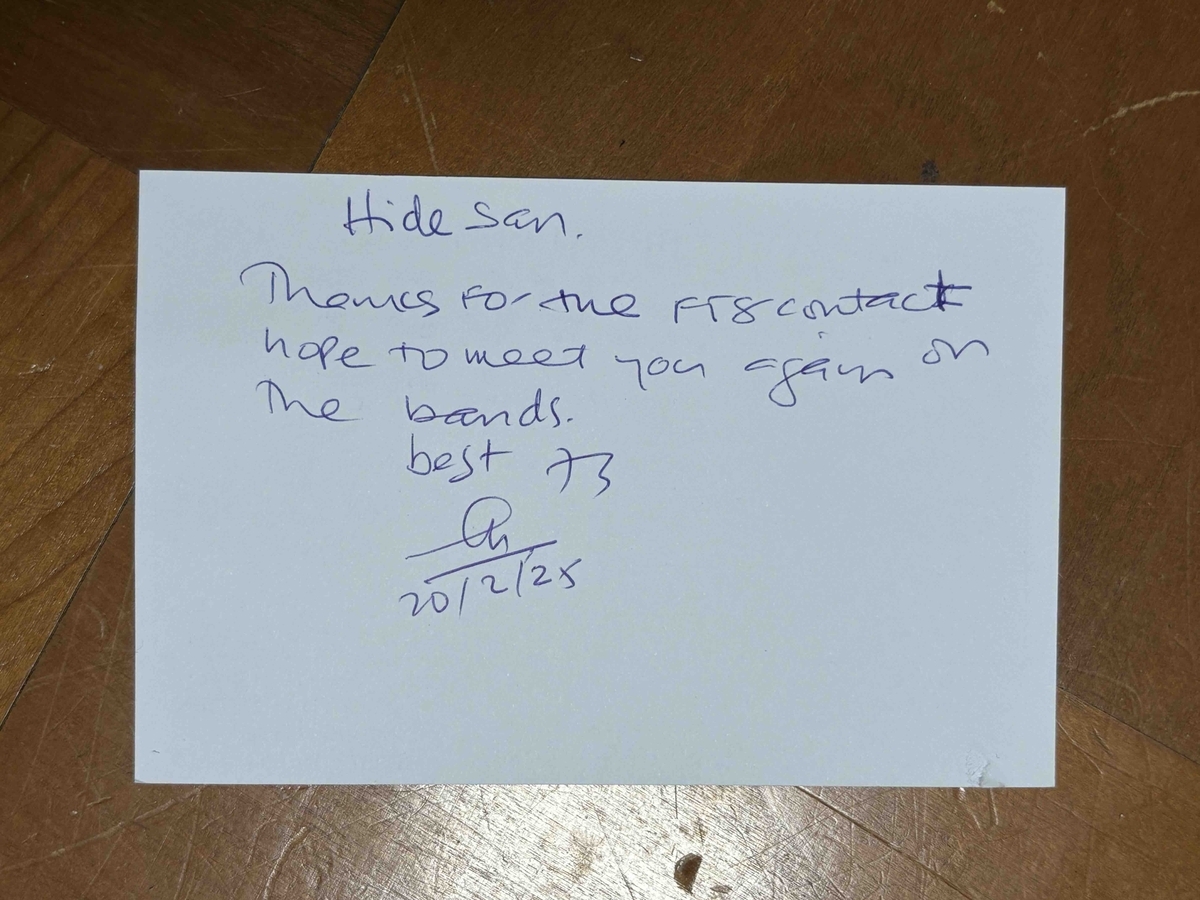 Hide San.
Thanks for the FT8 contact
hope to meet you again on
The bands.
best 73
20/2/25